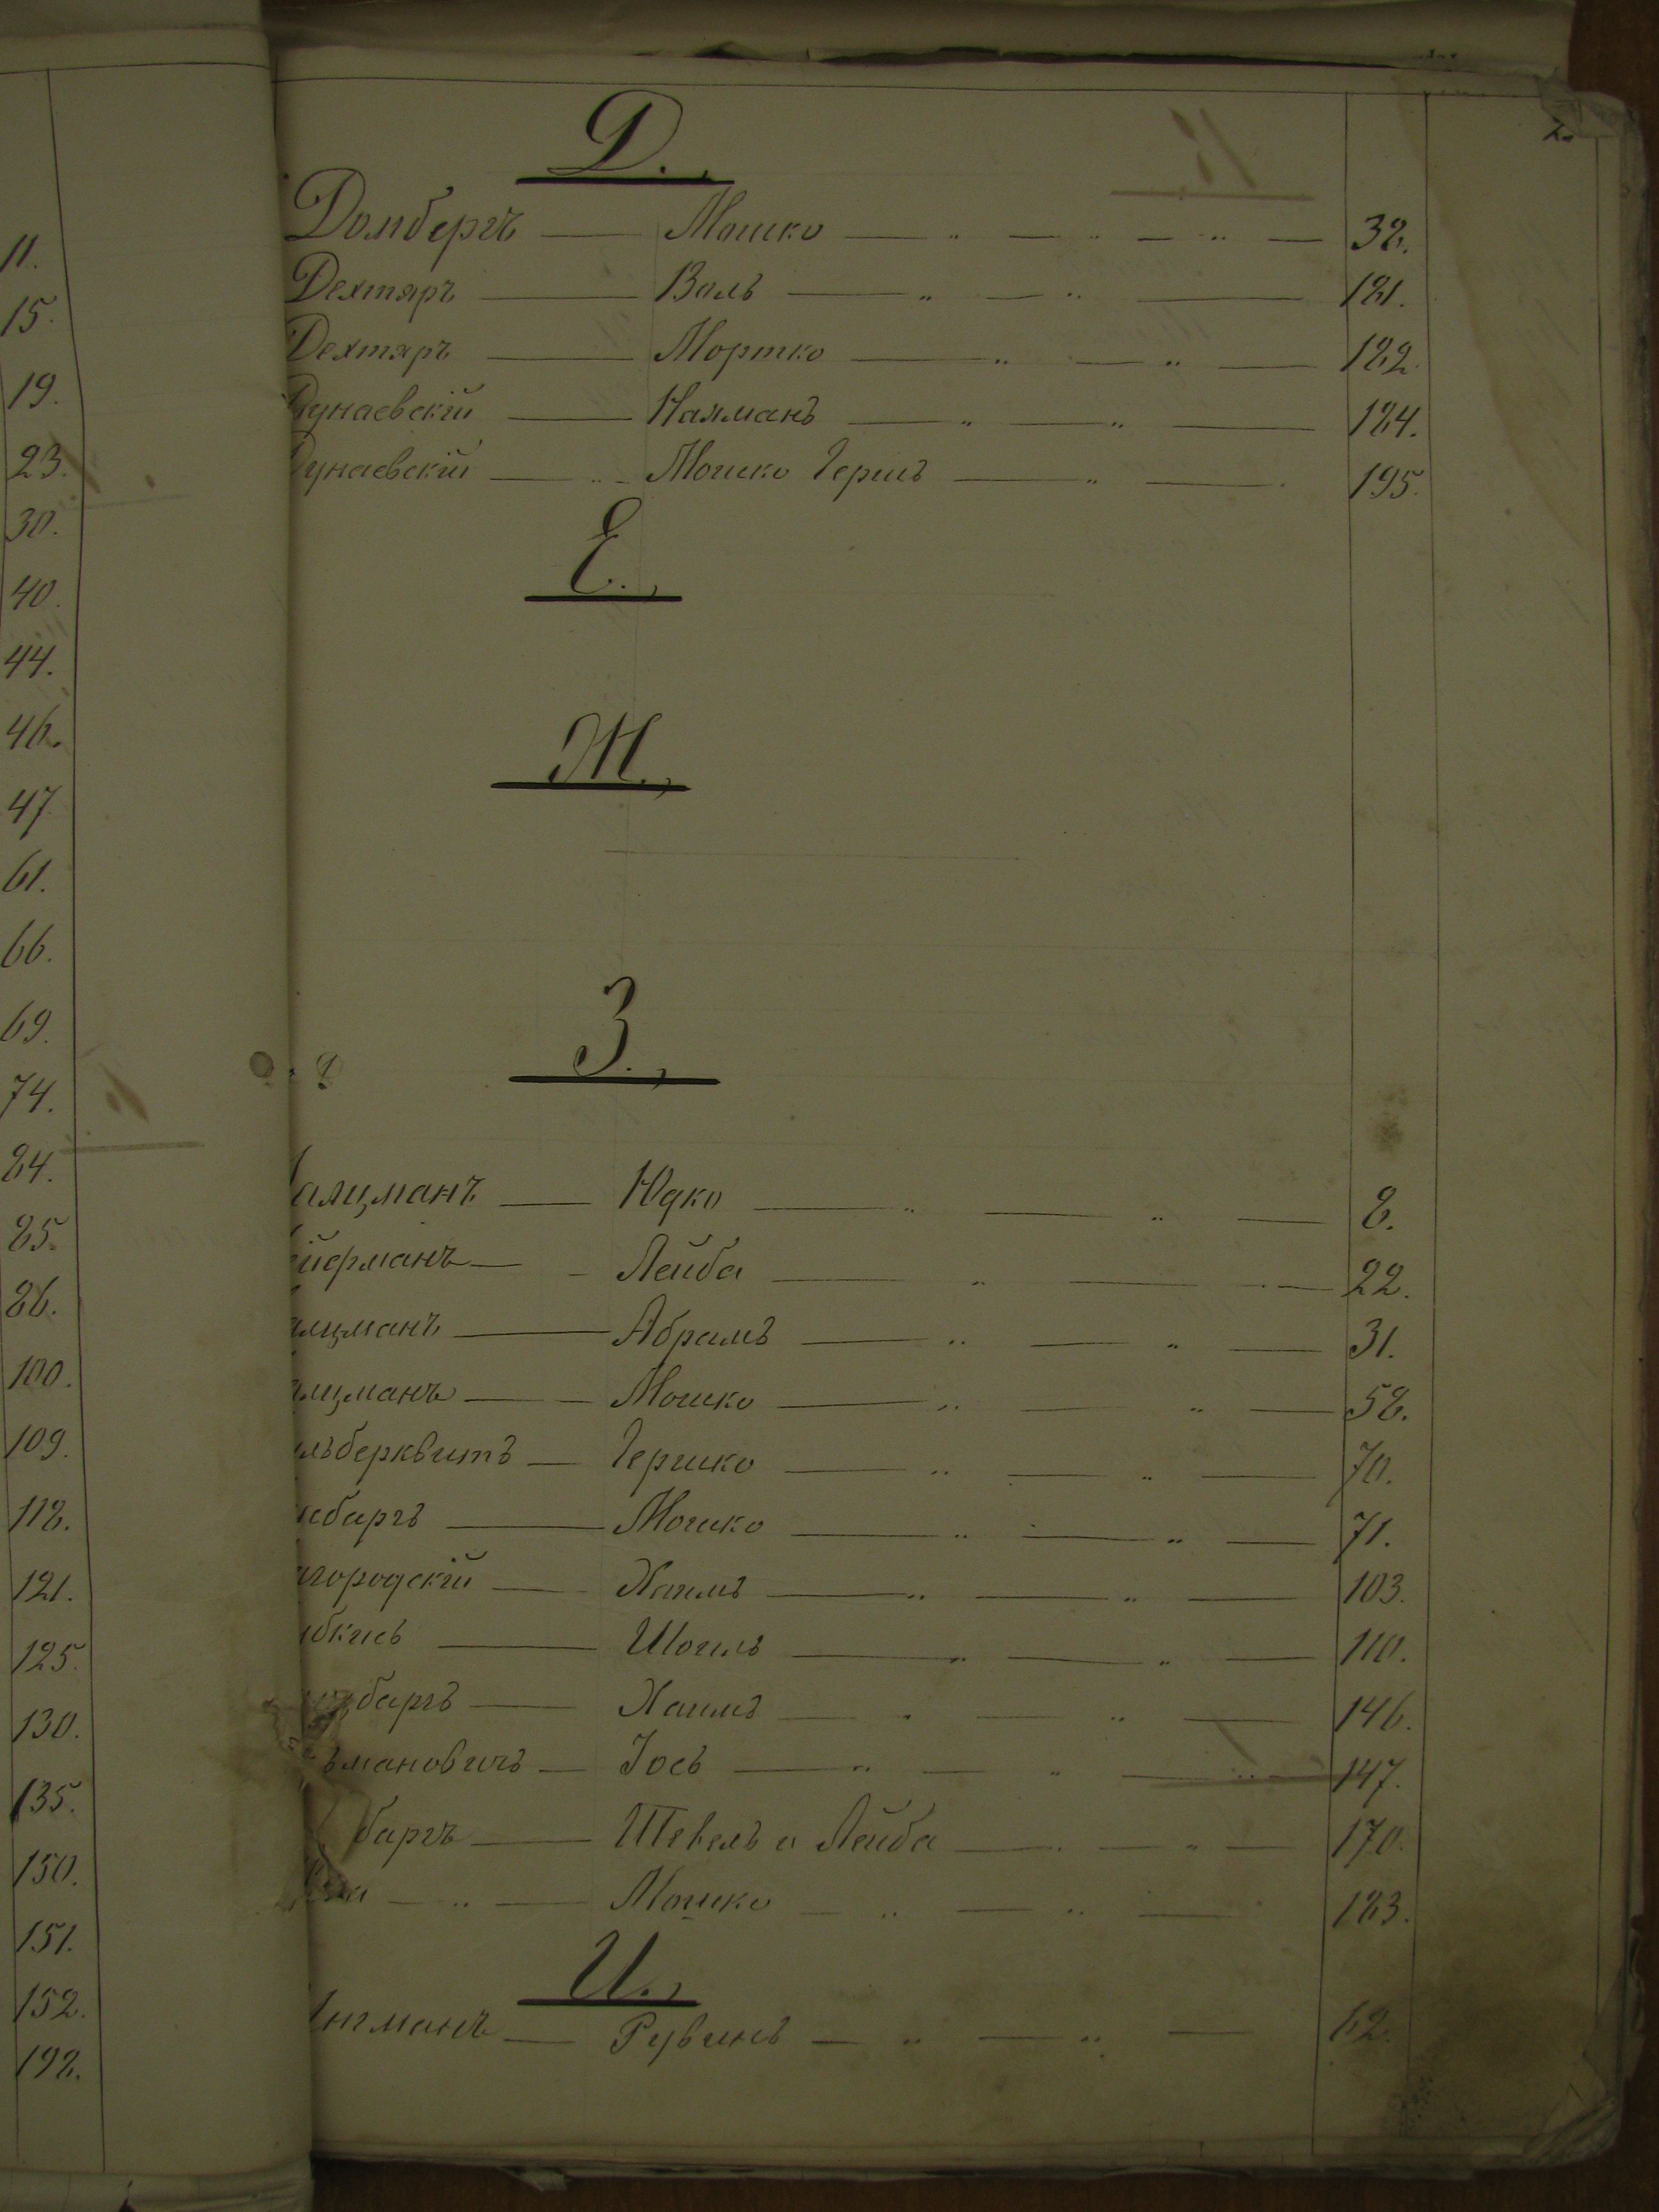 11.
15.
19.
23.
30.
40.
44.
46.
47.
61.
66.
69.
74.
84.
85.
86.
100.
109.
118.
121.
125.
130.
135.
150.
151.
152.
198.
Д.,
Домбергъ — Мошко — „ — „ — „ — 38.
Дехтяръ —Воль — „ — „ — 181.
Дехтяръ — Мортко — „ — „ — 182.
Дунаевскій — Нахманъ — „ — „ — 184.
Дунаевскій — „ — Мошко Гершъ — „ — 195.
Е.,
Ж.,
З.,
алцманъ — Юдко — „ — „ — 8.
йерманъ — Лейба — „ — 22.
алцманъ — Абрамъ — „ — „ — 31.
алцманъ — Мошко — „ — „ — 58.
льберквитъ — Гершко — „ — „ — 70.
нбаргъ — Мошко — „ — „ — 71.
агородскій — Хаимъ — „ — „ — 103.
Шоилъ — „ — „ — 110.
баргъ — Хаимъ — „ — „ — 146.
ьмановичъ — Іось — „ — „ — 147.
баргъ — Шевель и Лейба — „ — „ — 170.
— „ — Мошко — „ — „ — 183.
И.,
Ингманъ — Рувинъ — „ — „ — 62.